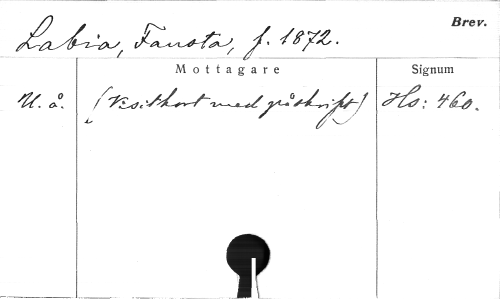 Brev.
Labia, Fausta, f. 1872.
Mottagare Signum
U. å. (Visitkort med påskrift) Hs: 460.